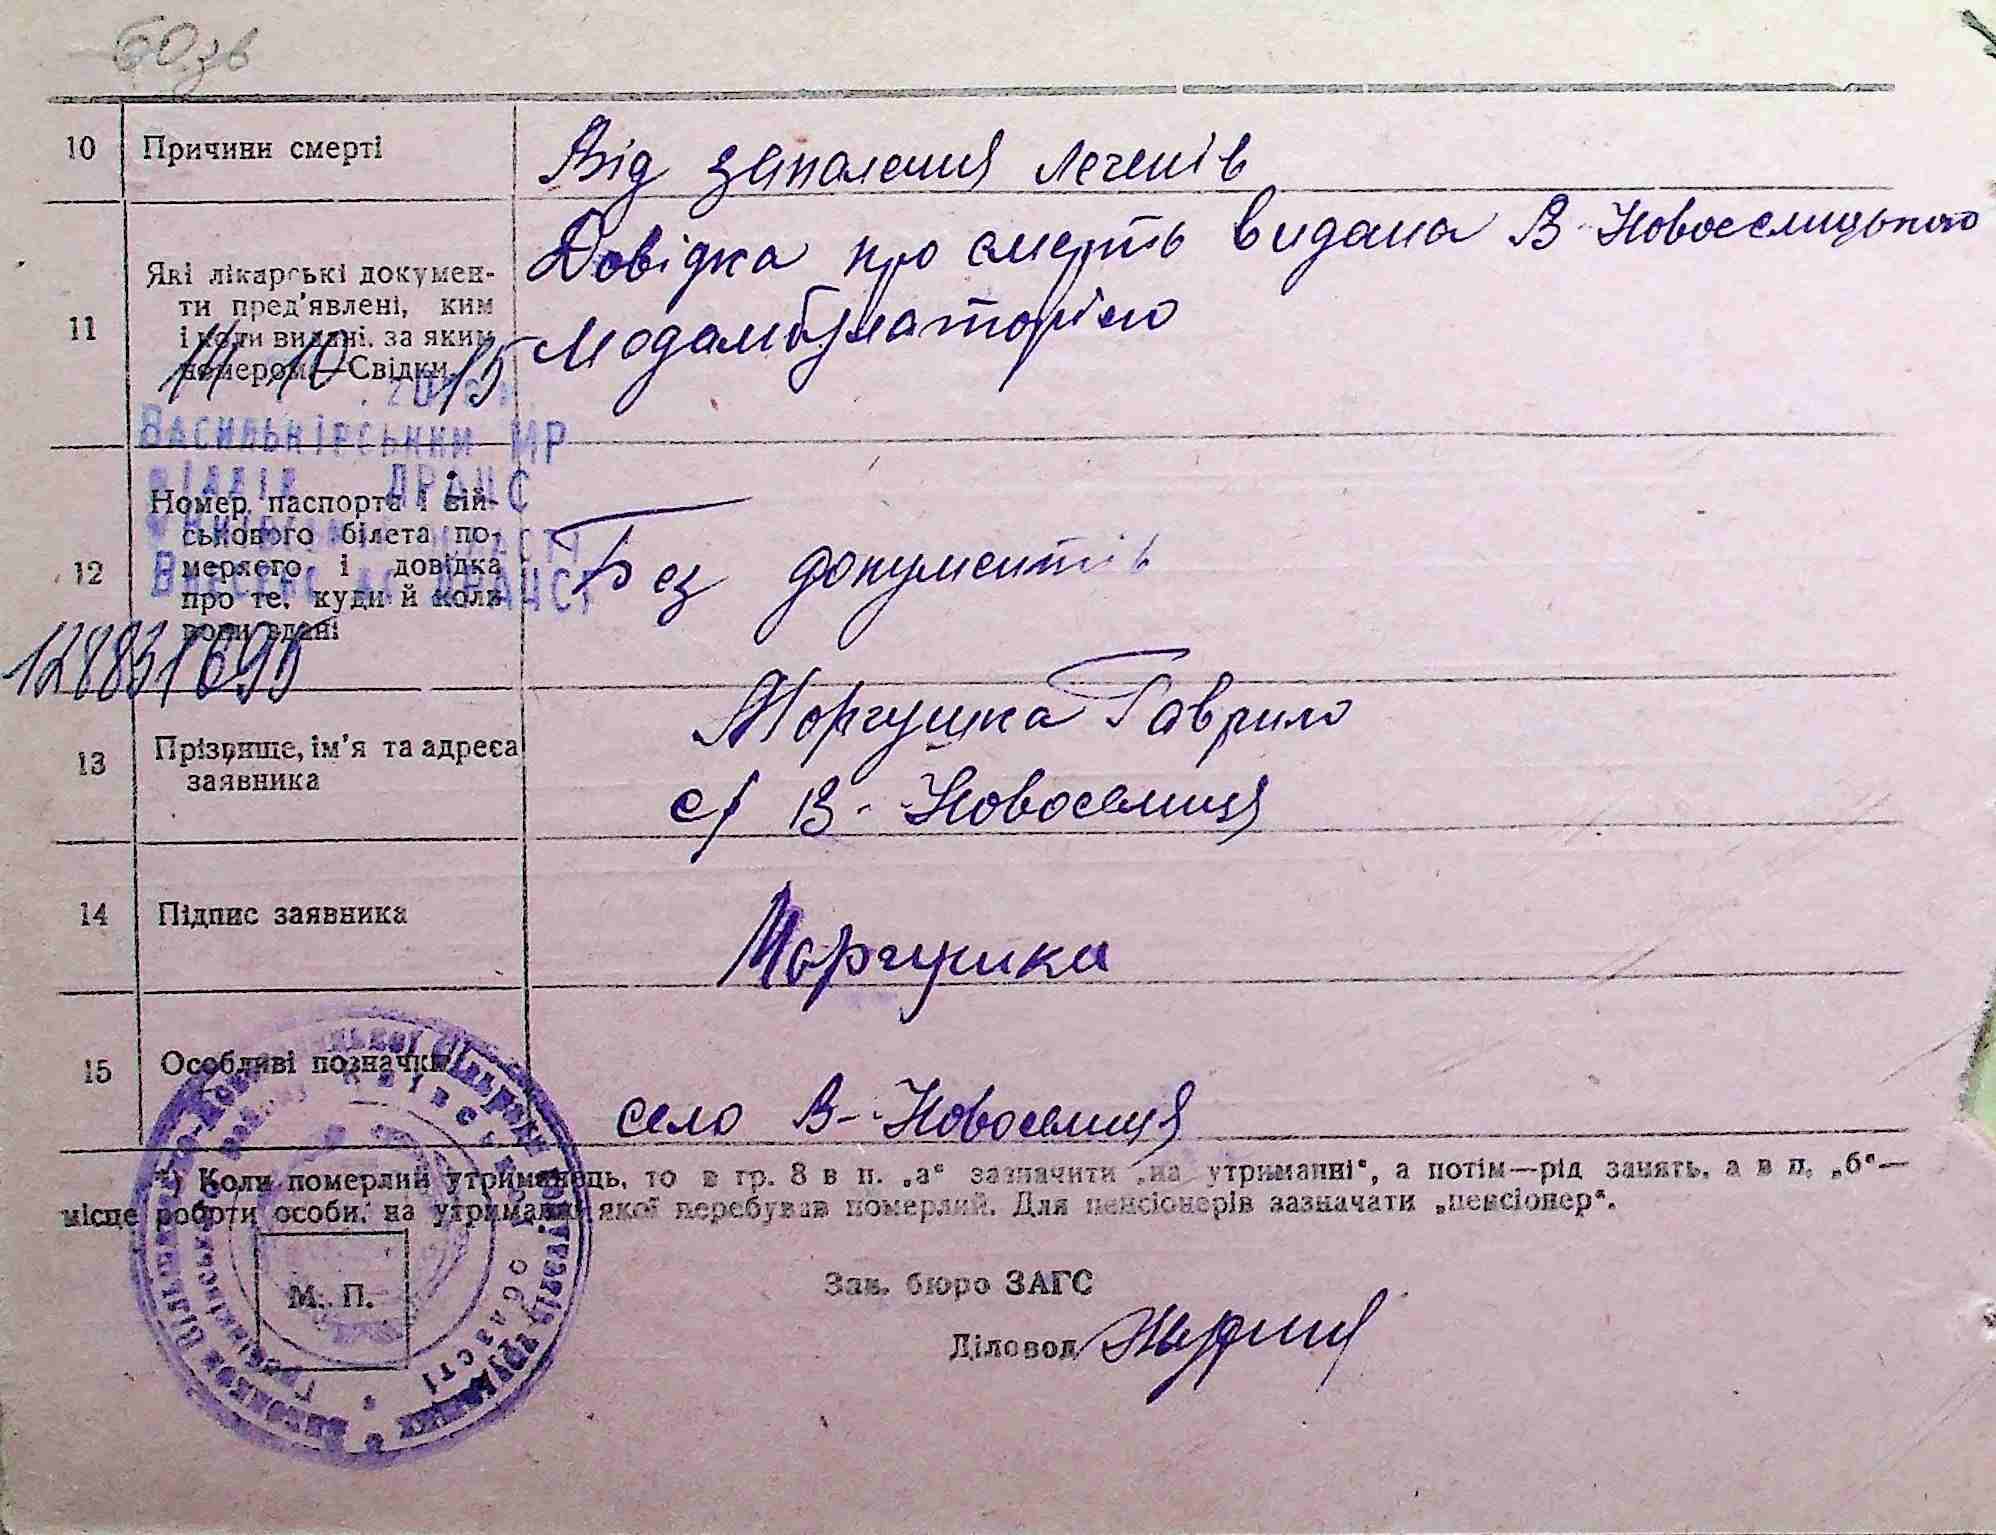 60зв
10 Причини смерті Від запалення легенів
11 Які лікарські докумен-
ти пред'явлені, ким
і коли видані, за яким
номером—Свідки.
Довідка про смерть видана В-Новоселицькою
Медамбулаторією
14 10 15
Васильківський МР
відділ ДРАЦС
12 Номер паспорта і вій-
ськового білета по-
мерлого і довідка
про те, куди й коли
вони здані
Без документів
13 Прізвище, ім'я та адреса
заявника
Моргушка Гаврило
с/ В-Новоселиця
14 Підпис заявника Моргушка
15 Особливі позначки село В-Новоселиця
*) Коли померлий утриманець, то в гр. 8 в п. „а“ зазначити „на утриманні“, а потім—рід занять, а в п. „б“—
місце роботи особи, на утриманні якої перебував померлий. Для пенсіонерів зазначати „пенсіонер“.
М. П.
Зав. бюро ЗАГС
Діловод